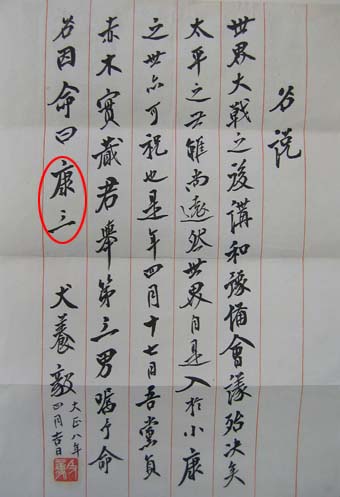 名説
世界大戰之後講和豫備會議殆決矣
太平之世雖尚遠然世界自是入於小康
之世亦可祝也是年四月十七日吾黨員
赤木實藏君舉第三男嘱予命
名因命曰康三
犬養毅
大正八年
四月吉日